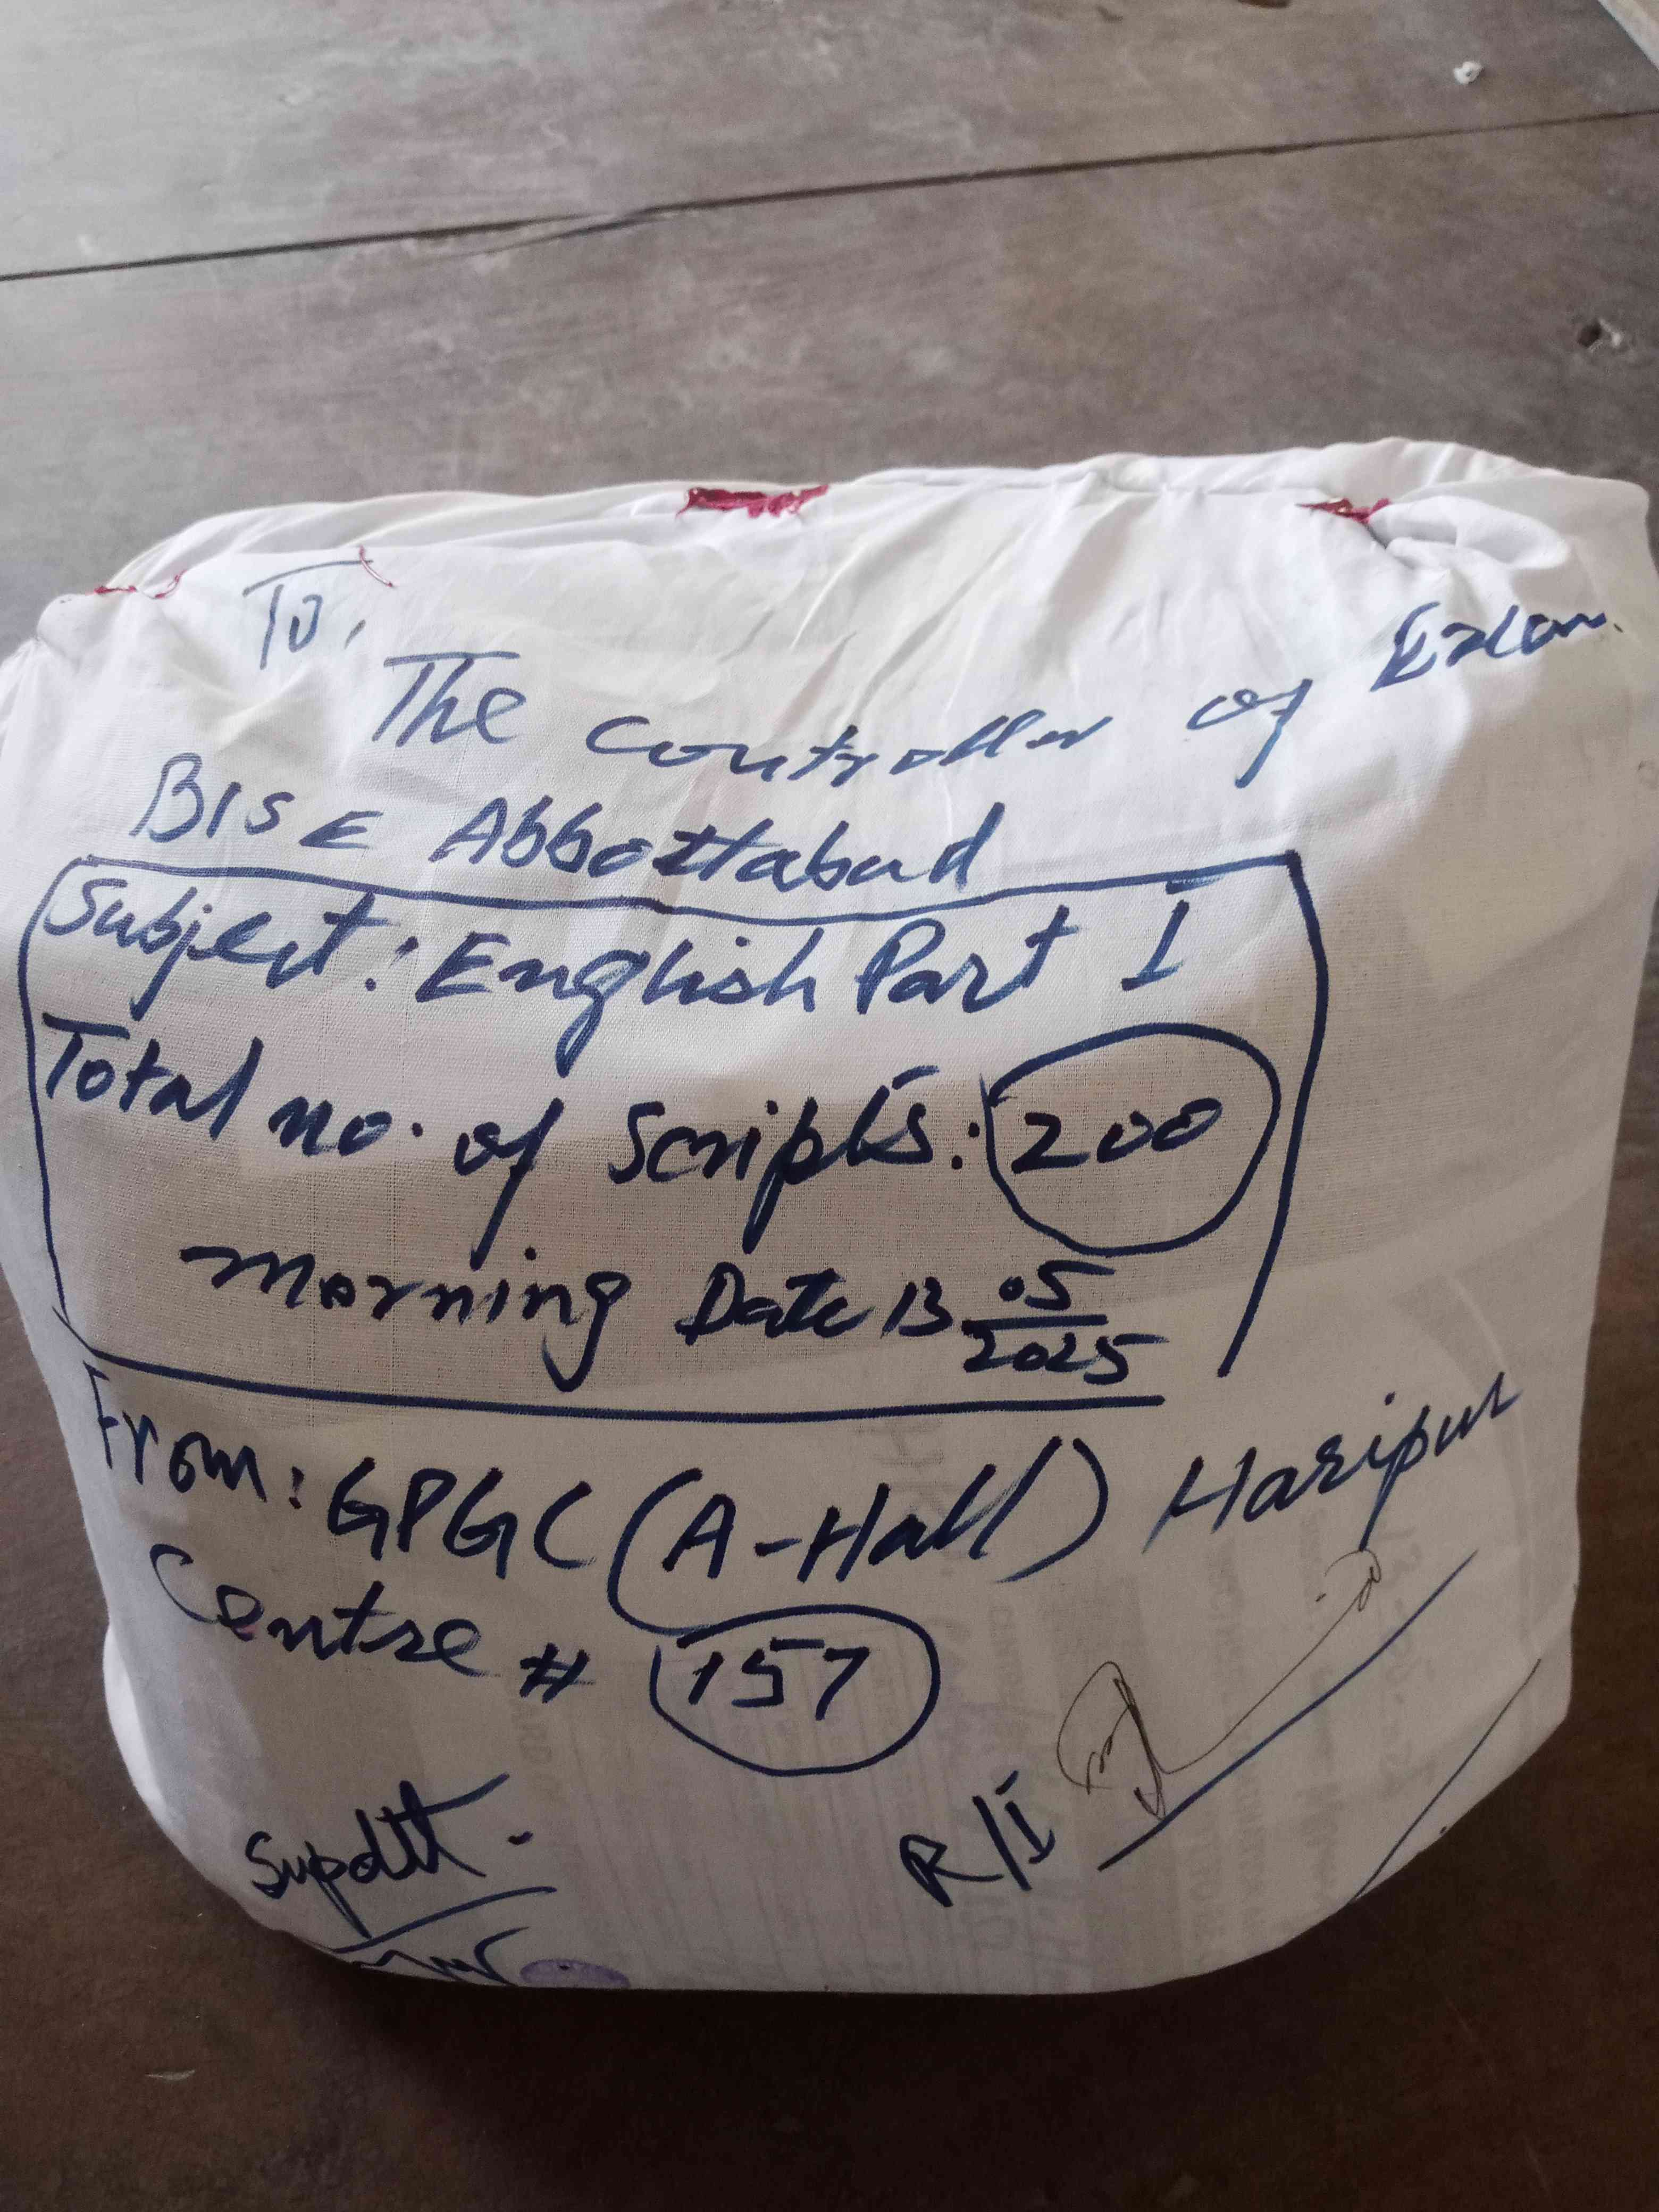 To,
The Controller of Exam.
BISE Abbottabad
Subject: English Part I
Total no. of Scripts: 200
Morning Date 13 05/2025
From: GPGC (A-Hall) Haripur
Centre # 157
Supdtt.
R/I